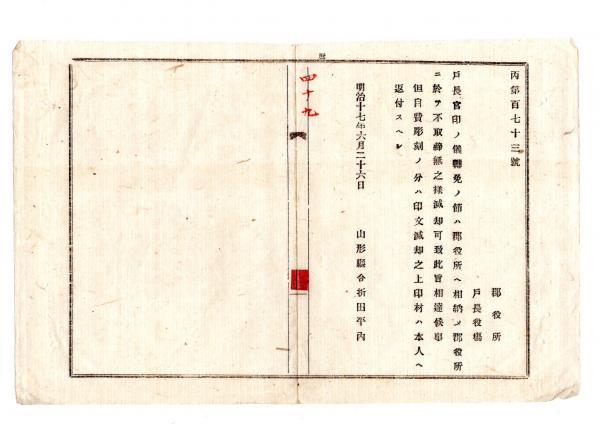 丙第百七十三號
郡役所
戸長役塲
戸長官印ノ儀轉免ノ節ハ郡役所ヘ相納メ郡役所
ニ於テ不取締無之樣滅却可致此旨相達候事
但自費彫刻ノ分ハ印文滅却之上印材ハ本人ヘ
返付スヘシ
明治十七年六月二十六日
山形縣令折田平内
四十九